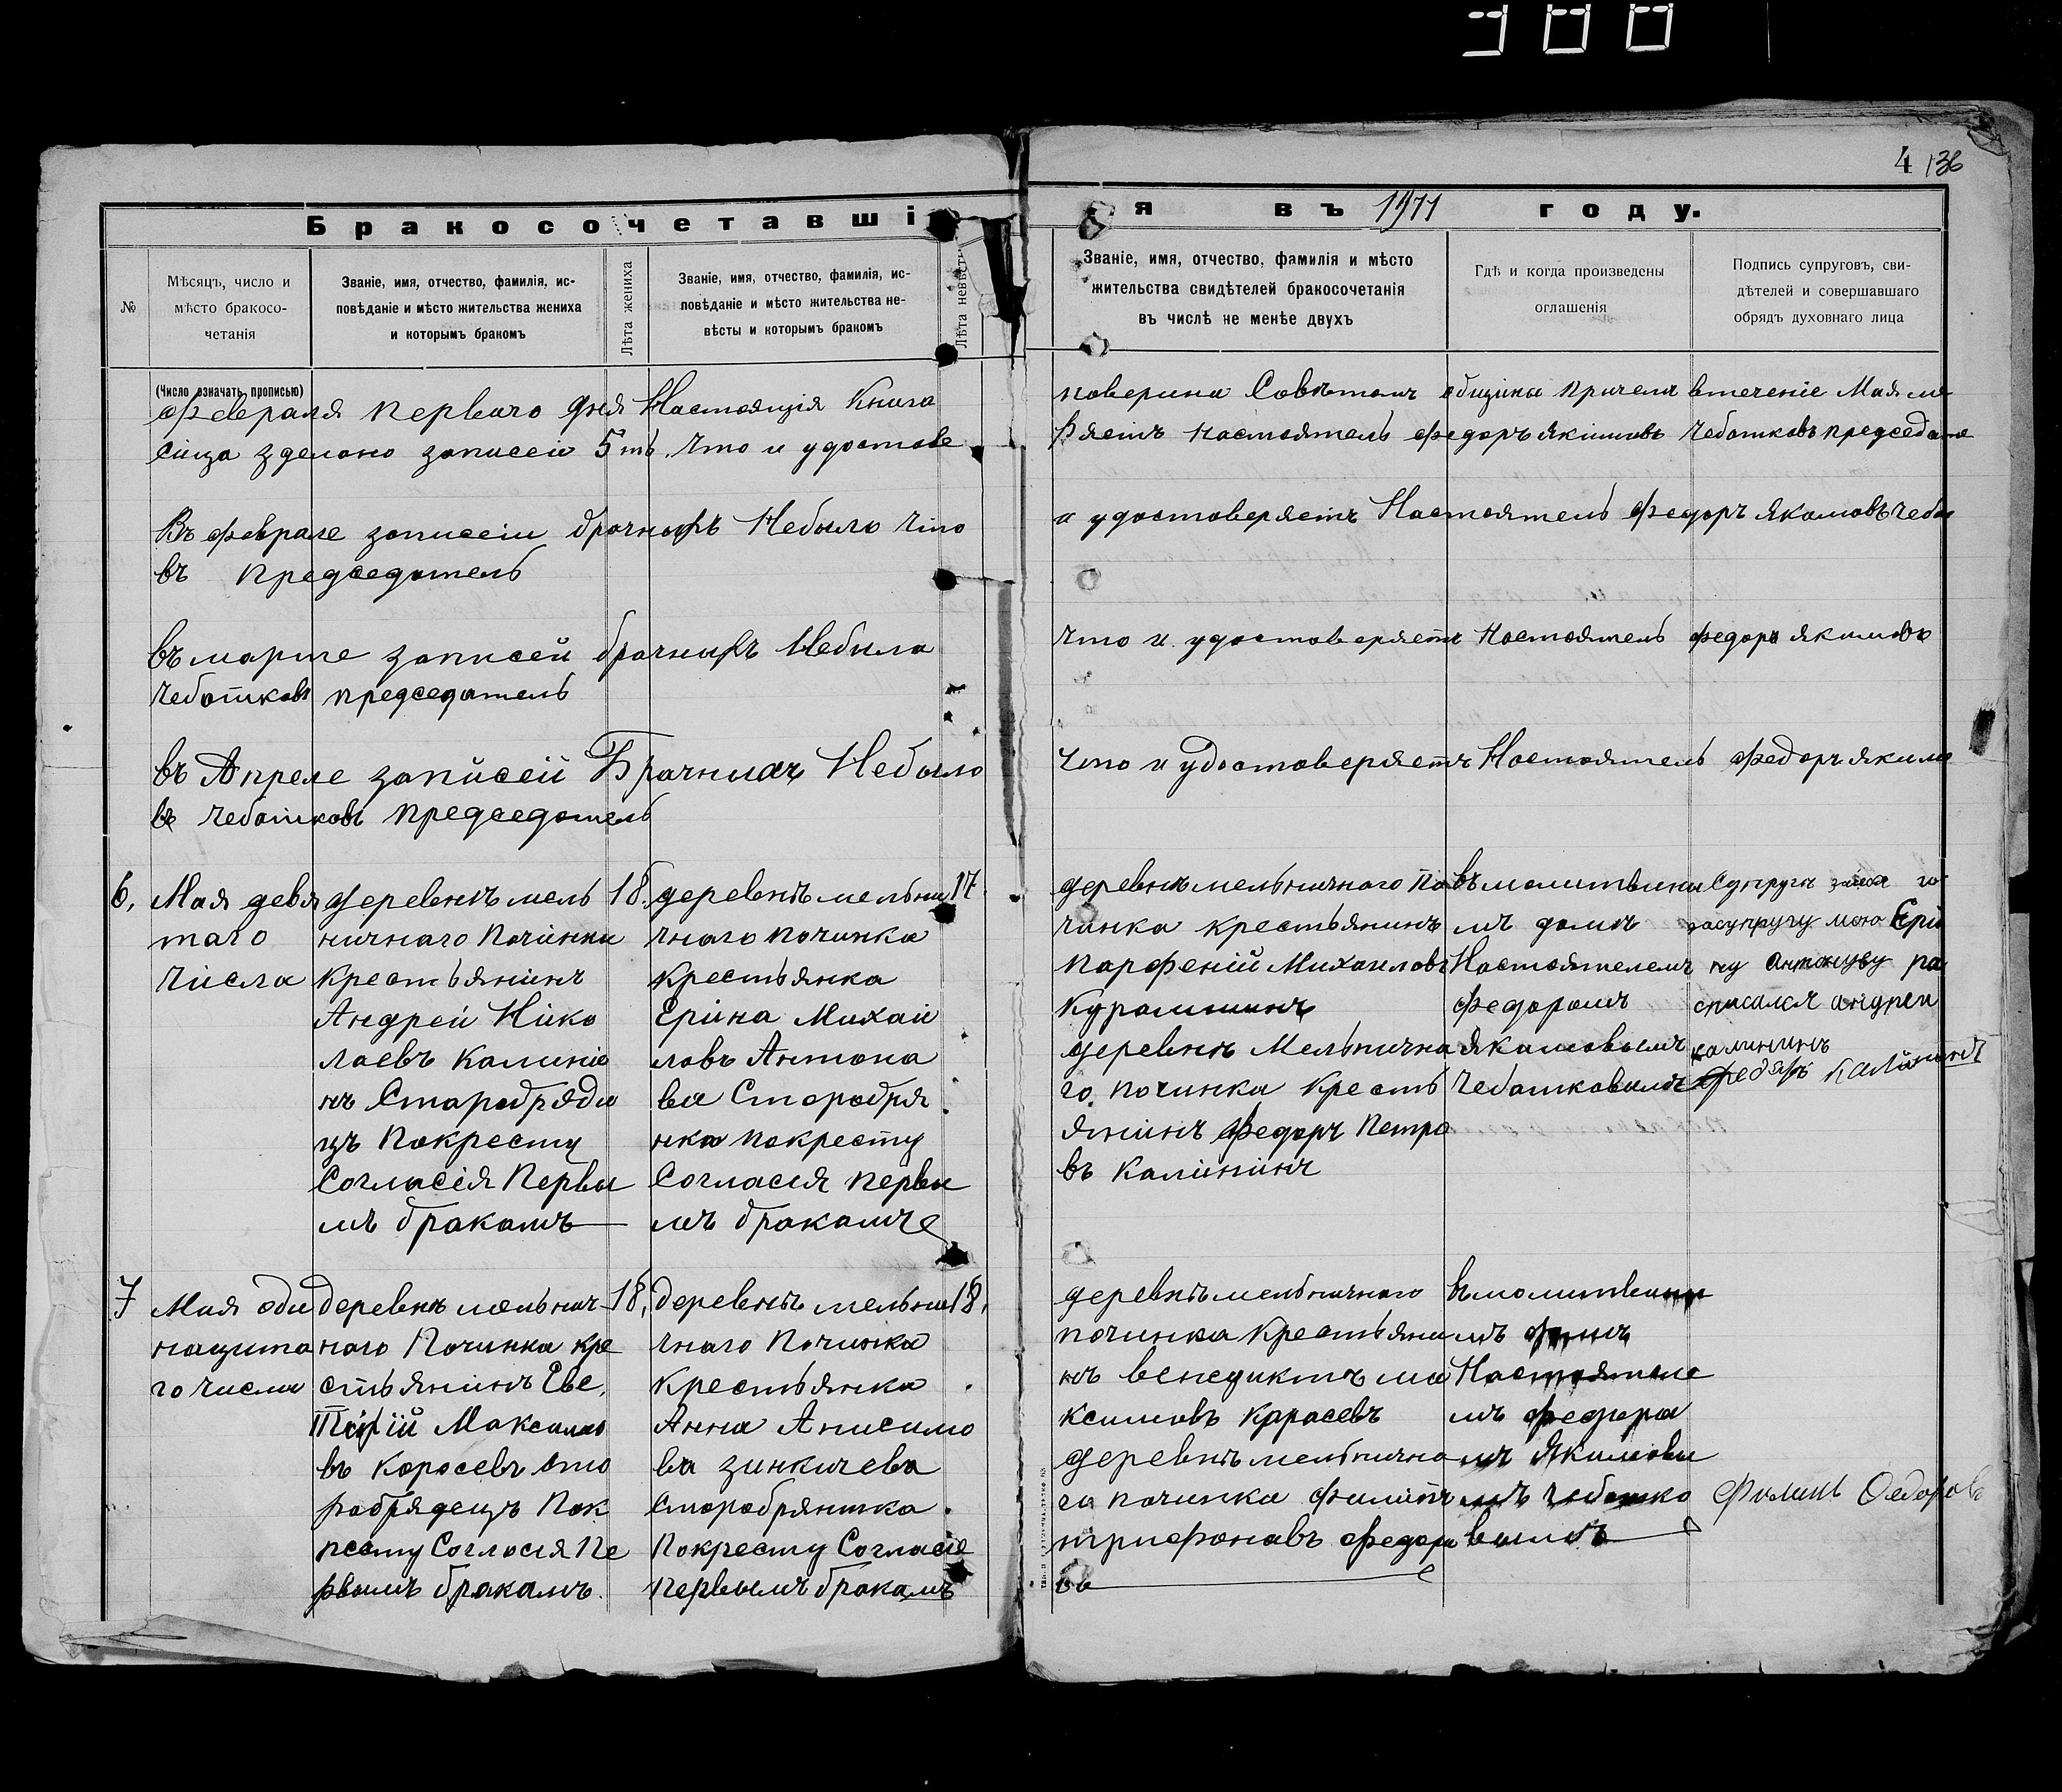 4 136
Бракосочетавшіся въ 1911 году.
№
Мѣсяцъ, число и
мѣсто бракосо-
четанія
Званіе, имя, отчество, фамилія, ис-
повѣданіе и мѣсто жительства жениха
и которымъ бракомъ
Лѣта жениха
Званіе, имя, отчество, фамилія, ис-
повѣданіе и мѣсто жительства не-
вѣсты и которымъ бракомъ
Лѣта невѣсты
Званіе, имя, отчество, фамилія и мѣсто
жительства свидѣтелей бракосочетанія
въ числѣ не менѣе двухъ
Гдѣ и когда произведены
оглашенія
Подпись супруговъ, сви-
дѣтелей и совершавшаго
обрядъ духовнаго лица
(Число означать прописью)
Февраля перваго дня Настоящія Книга поверина Советомъ общины Причемъ втеченіе Мая ме
сица зделоно записеи 5ть. Что и удостове ряетъ Настоятель Федоръ якимовъ Чеботковъ председате
Въ феврале записеіи брачныхъ Небыло Что и удостоверяетъ Настоятель Федоръ Якамовъ Чебо
въ председатель
въ марте записей брачныхъ Небыла Что и удостоверяетъ Настоятель Федоръ якимовъ
Чеботковъ председатель
въ Апреле записей Брачныхъ Небыло Что и удостоверяетъ Настоятель Федоръ якимо
въ Чеботковъ председатель
6.
Мая девя
таго
Числа
деревнъ мель
ничнаго Починки
Крестьянинъ
Андрей Нико
лаевъ Калини
нъ Старобрядв
цъ Покресту
Согласія Первы
мъ бракамъ
18.
деревнъ мельни
чнаго починка
Крестьянка
Еріна Михаи
ловъ Антона
ва Старобря
нка покресту
Согласія первы
мъ бракамъ
17
деревнъ мельничнаго По
чинка крестьянинъ
Парфеній Михаиловъ
Курамшинъ
деревнъ Мельнична
го. починка Кресть
янинъ Федоръ Петро
въ Калининъ
въ молитвини
мъ домъ
Настоятелемъ
Федорамъ
Якамовымъ
Чеботковымъ
Супругъ за себя
засупругу мою Ери
ну антонуву ра
списался андреи
калининъ
Федаръ калининъ
7
Мая оди
нацита
го числа
деревнъ мельнич
наго Починка кре
стьянинъ Еве,
Максимо
въ Коросевъ ста
робрядецъ Пок
ресту Согласія Пе
рвымъ бракамъ.
18,
деревнъ мельни
чнаго Починка
Крестьянка
Анна Анисимо
ва зинкичева
старобрянка
Покресту Согласіе
Первымъ бракамъ
18,
деревнъ мельничнаго
починка Крестьяни
нъ Венедиктъ ма
ксимовъ Карасевъ
деревнъ мельнична
га починка филипъ
трифонавъ федоро
въ
въ молитвини
мъ домъ
Настоятеле
мъ федора
мъ Якимовы
мъ чеботко
вымъ
Филипъ Федоровъ